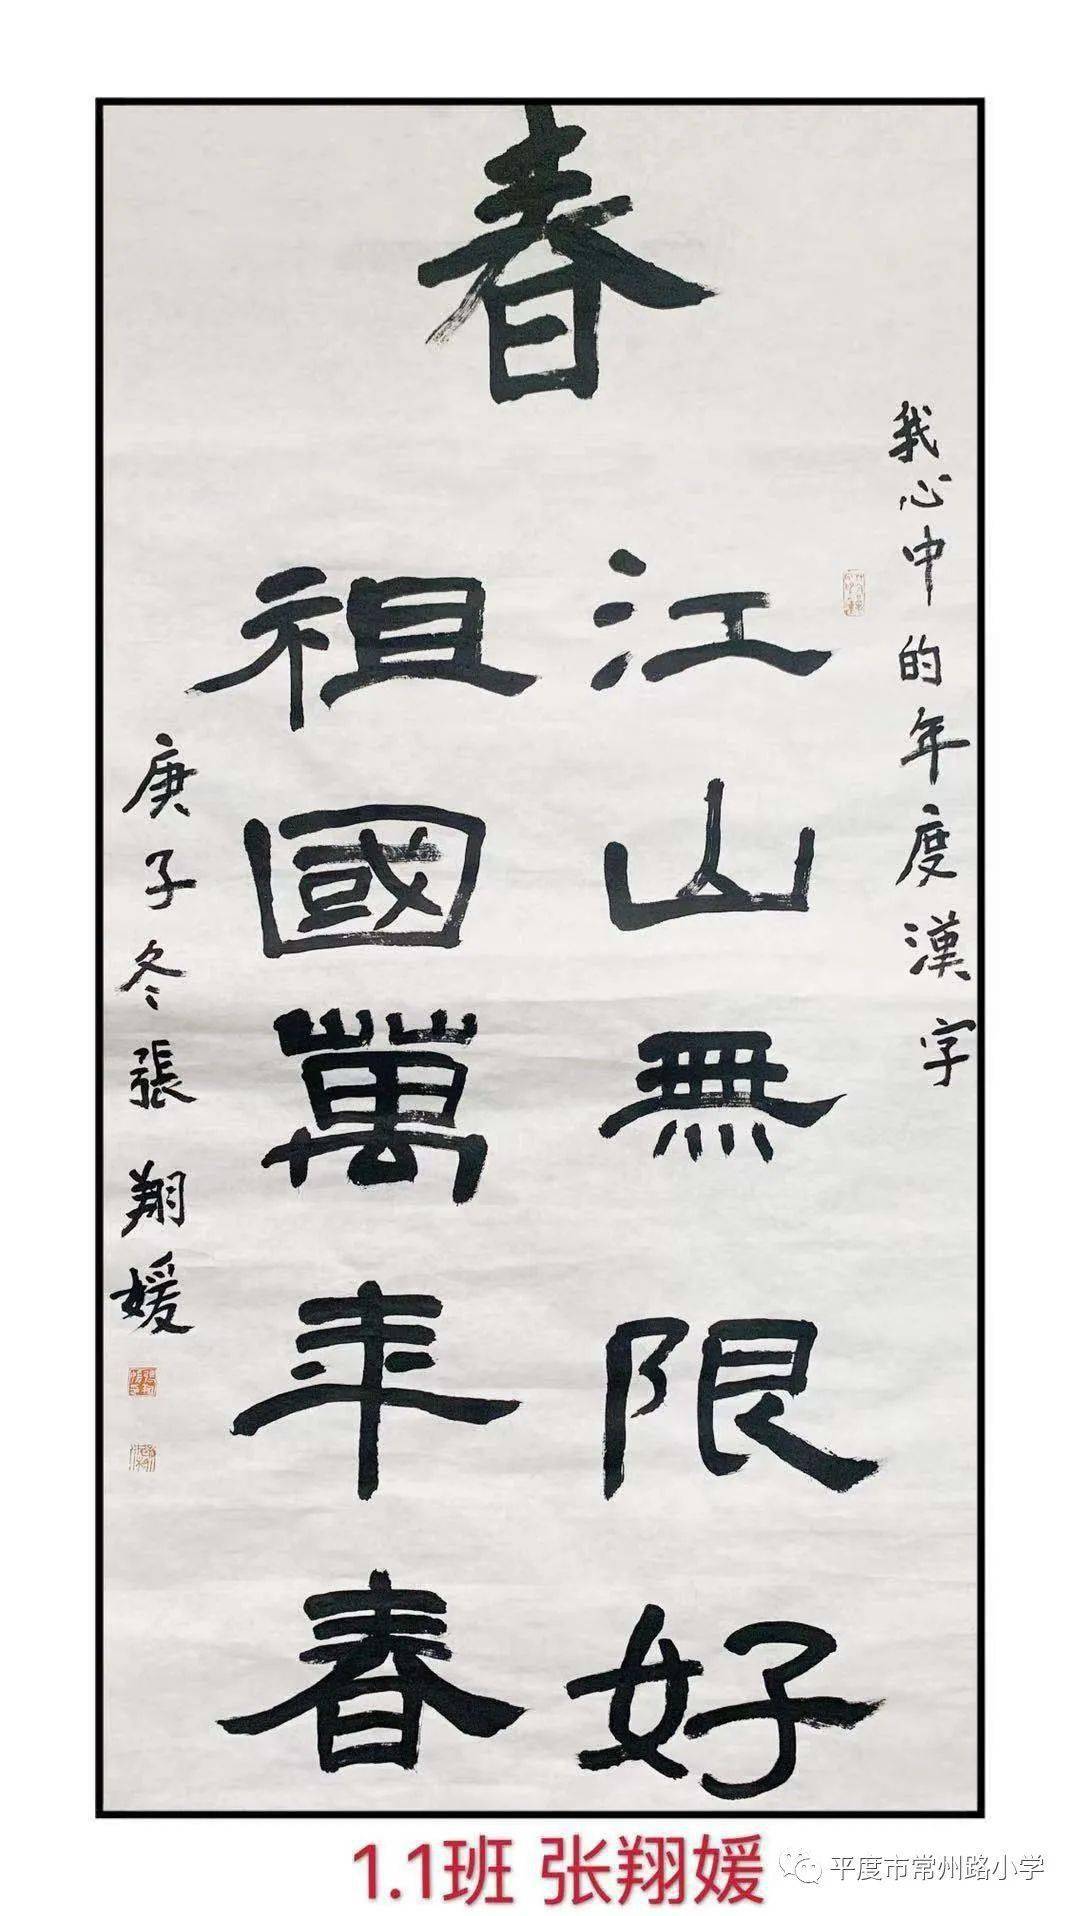 春
我心中的年度漢字
江山無限好
祖國萬年春
庚子冬張翔媛
1.1班 张翔媛
平度市常州路小学